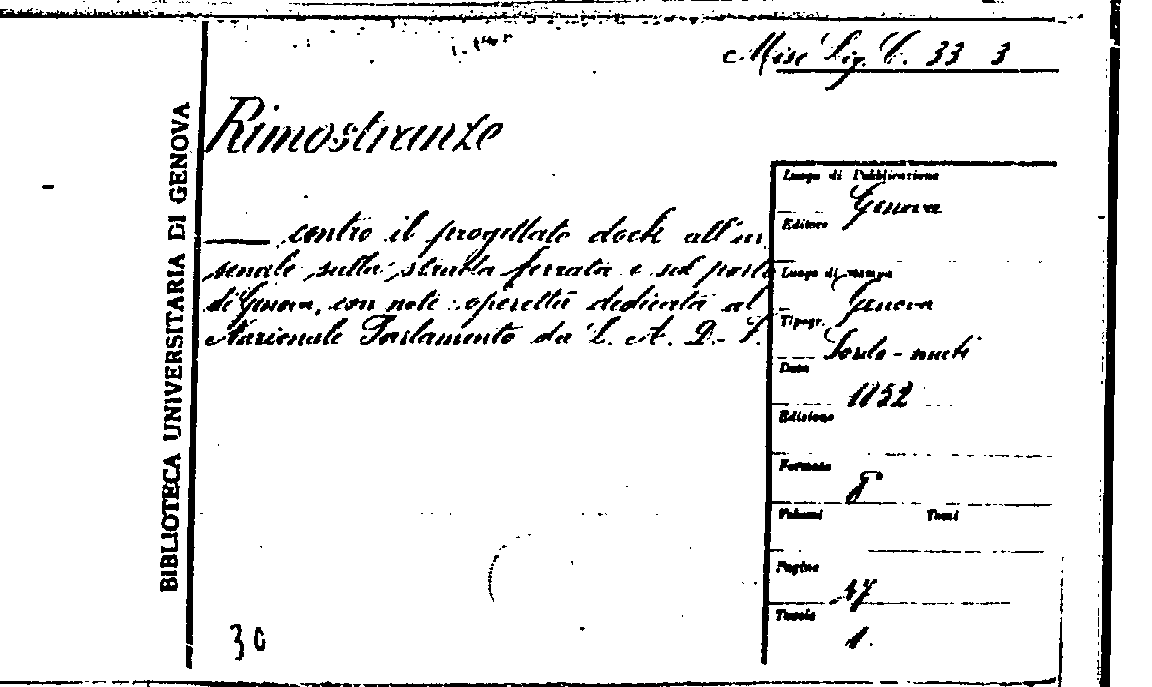 Misc Lig. C. 33 3
BIBLIOTECA UNIVERSITARIA DI GENOVA
Rimostranze
contro il progettato dock all'ar
senale sulla strada ferrata e sul porto
di Genova, con note: operetta dedicata al
Nazionale Parlamento da L. A. D.
Luogo di Pubblicazione
Genova
Editore
Luogo di stampa
Genova
Tipogr.
Sordo-muti
Data
1852
Edizione
Formato
8
Volumi Tomi
Pagine
Tavole
1.
30